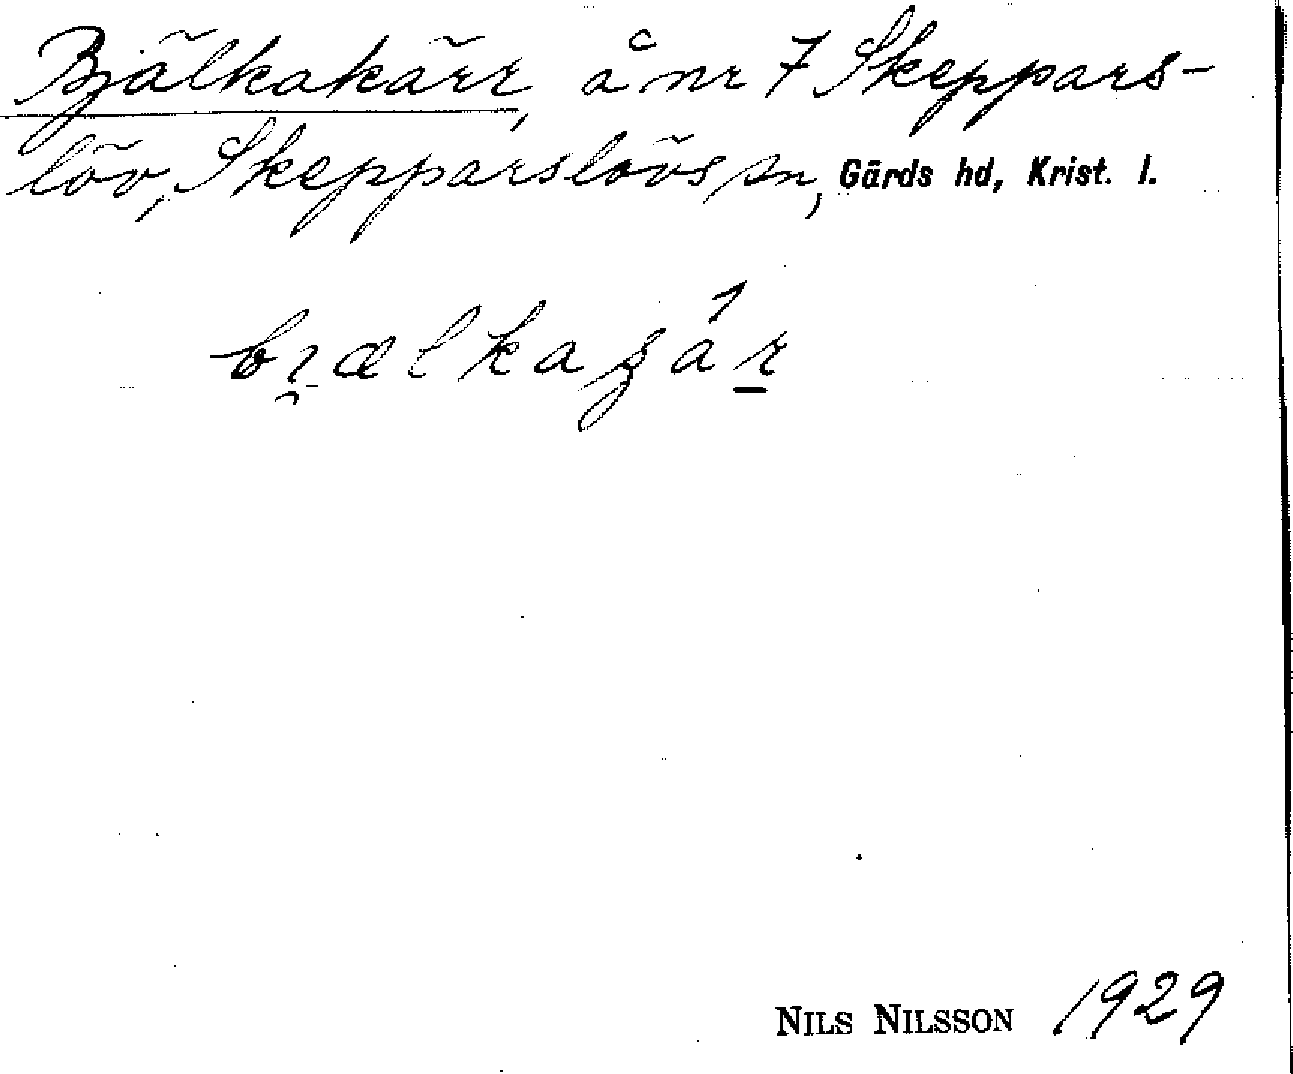 Bjälkakärr, å nr 7 Skeppars-
löv, Skepparslövs sn, Gärds hd, Krist. l.
NILS NILSSON 1929